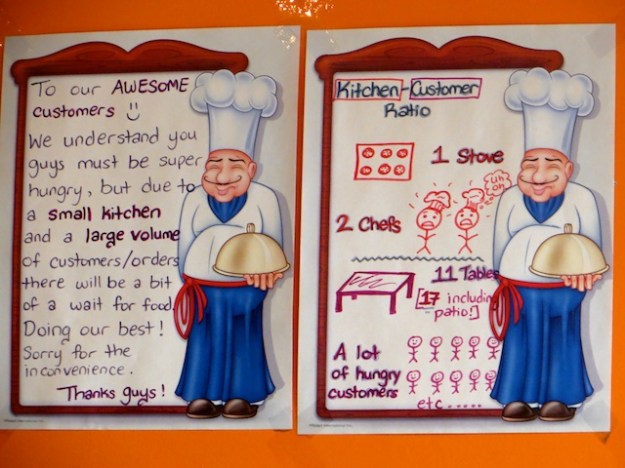 To our AWESOME
customers
We understand you
guys must be super
hungry, but due to
a small kitchen
and a large volume
of customers/orders
there will be a bit
of a wait for food.
Doing our best!
Sorry for the
inconvenience.
Thanks guys!
Kitchen-Customer
Ratio
1 Stove
uh oh
2 Chefs
11 Tables
[17 includin
patio!]
A lot
of hungry
customers
etc.....